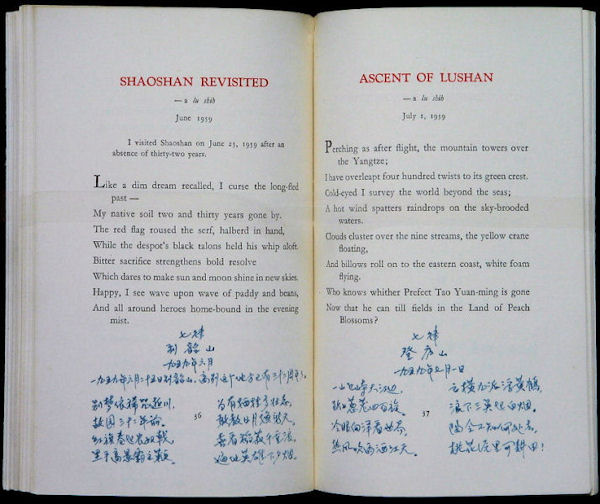 SHAOSHAN REVISITED
— a lu shih
June 1959
I visited Shaoshan on June 25, 1959 after an
absence of thirty-two years.
Like a dim dream recalled, I curse the long-fled
past —
My native soil two and thirty years gone by.
The red flag roused the serf, halberd in hand,
While the despot's black talons held his whip aloft.
Bitter sacrifice strengthens bold resolve
Which dares to make sun and moon shine in new skies.
Happy, I see wave upon wave of paddy and beans,
And all around heroes home-bound in the evening
mist.
七律
到韶山
一九五九年六月
一九五九年六月二十五日到韶山。离别这个地方已有三十二周年了。
别梦依稀咒逝川， 为有牺牲多壮志，
故园三十二年前。 敢教日月换新天。
红旗卷起农奴戟， 喜看稻菽千重浪，
黑手高悬霸主鞭。 遍地英雄下夕烟。
36
ASCENT OF LUSHAN
— a lu shih
July 1, 1959
Perching as after flight, the mountain towers over
the Yangtze;
I have overleapt four hundred twists to its green crest.
Cold-eyed I survey the world beyond the seas;
A hot wind spatters raindrops on the sky-brooded
waters.
Clouds cluster over the nine streams, the yellow crane
floating,
And billows roll on to the eastern coast, white foam
flying.
Who knows whither Prefect Tao Yuan-ming is gone
Now that he can till fields in the Land of Peach
Blossoms?
七律
登庐山
一九五九年七月一日
一山飞峙大江边， 云横九派浮黄鹤，
跃上葱茏四百旋。 浪下三吴起白烟。
冷眼向洋看世界， 陶令不知何处去，
热风吹雨洒江天。 桃花源里可耕田！
37